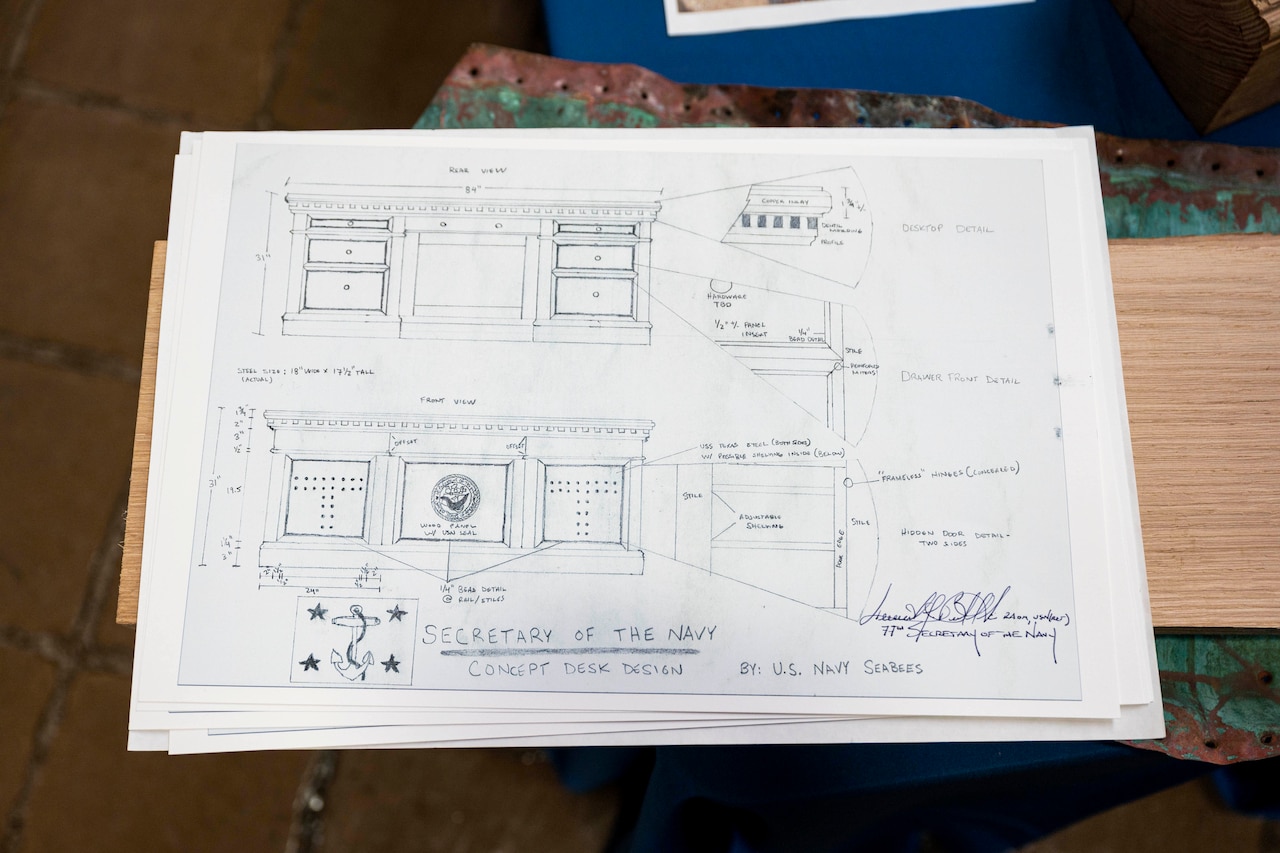 REAR VIEW
84"
31"
COPPER INLAY
DENTIL
MOLDING
PROFILE
DESKTOP DETAIL
HARDWARE
TBD
1/2" +/- PANEL
INSERT
1/4"
BEAD DETAIL
STILE
MITERS
DRAWER FRONT DETAIL
STEEL SIZE: 18" WIDE X 17 1/2" TALL
(ACTUAL)
FRONT VIEW
1 3/4"
2"
3"
1/2"
31"
19.5
3"
24"
OFFSET
OFFSET
WOOD PANEL
W/ USN SEAL
1/4" BEAD DETAIL
@ RAIL/STILES
USS TEXAS STEEL (BOTH SIDES)
W/ POSSIBLE SHELVING INSIDE (BELOW)
STILE
ADJUSTABLE
SHELVING
STILE
"FRAMELESS" HINGES (CONCEALED)
HIDDEN DOOR DETAIL -
TWO SIDES
77th SECRETARY OF THE NAVY
SECRETARY OF THE NAVY
CONCEPT DESK DESIGN
BY: U.S. NAVY SEABEES